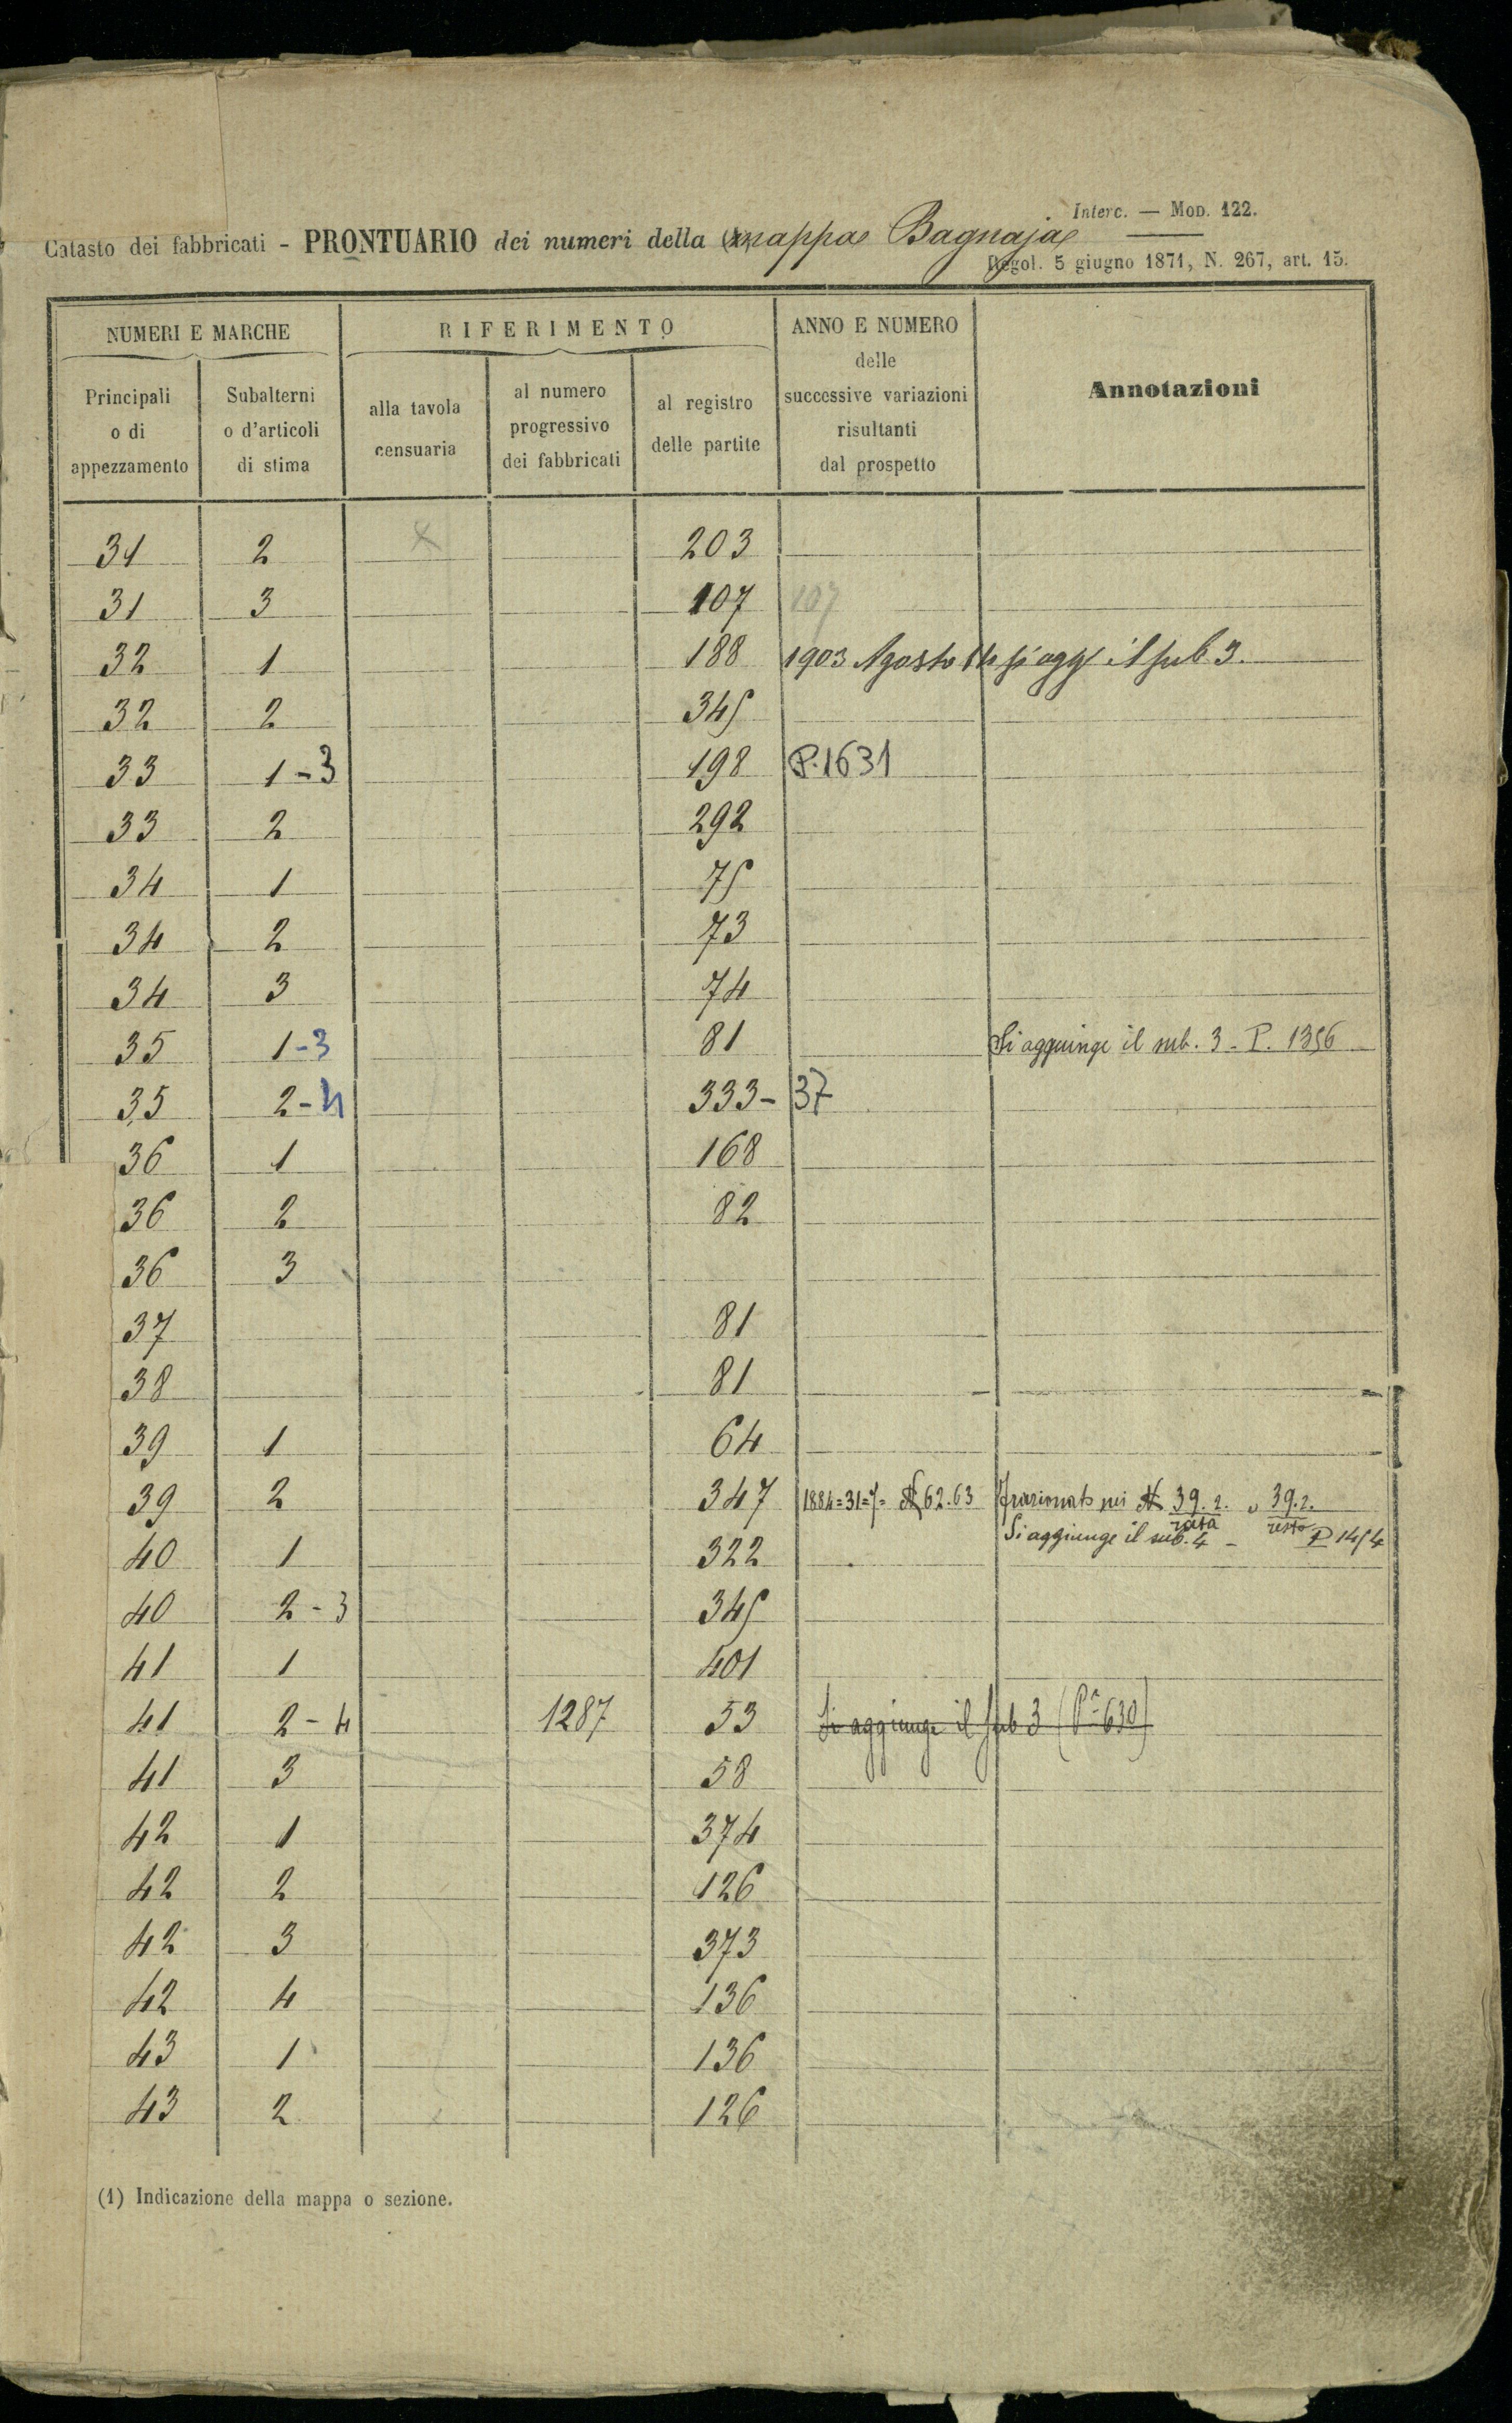 Interc. — Mod. 122.
Catasto dei fabbricati - PRONTUARIO dei numeri della mappa Bagnaja
Regol. 5 giugno 1871, N. 267, art. 15.
NUMERI E MARCHE
RIFERIMENTO
ANNO E NUMERO delle successive variazioni risultanti dal prospetto
Annotazioni
Principali o di appezzamento
Subalterni o d'articoli di stima
alla tavola censuaria
al numero progressivo dei fabbricati
al registro delle partite
31 2 x 203
31 3 107 107
32 1 188 1903 Agosto si agg il sub 3.
32 2 345
33 1-3 198 P. 1631
33 2 292
34 1 75
34 2 73
34 3 74
35 1-3 81 Si aggiunge il sub. 3 - P. 1356
35 2-4 333- 37
36 1 168
36 2 82
36 3
37 81
38 81
39 1 64
39 2 347 1884=31=7= N 62.63 Frazionato nei N 39.2. e 39.2.
rata resto
Si aggiunge il sub. 4 - P 1454
40 1 322
40 2-3 345
41 1 401
41 2-4 1287 53 Si aggiunge il sub 3 (Pa 630)
41 3 58
42 1 374
42 2 126
42 3 373
42 4 136
43 1 136
43 2 126
(1) Indicazione della mappa o sezione.